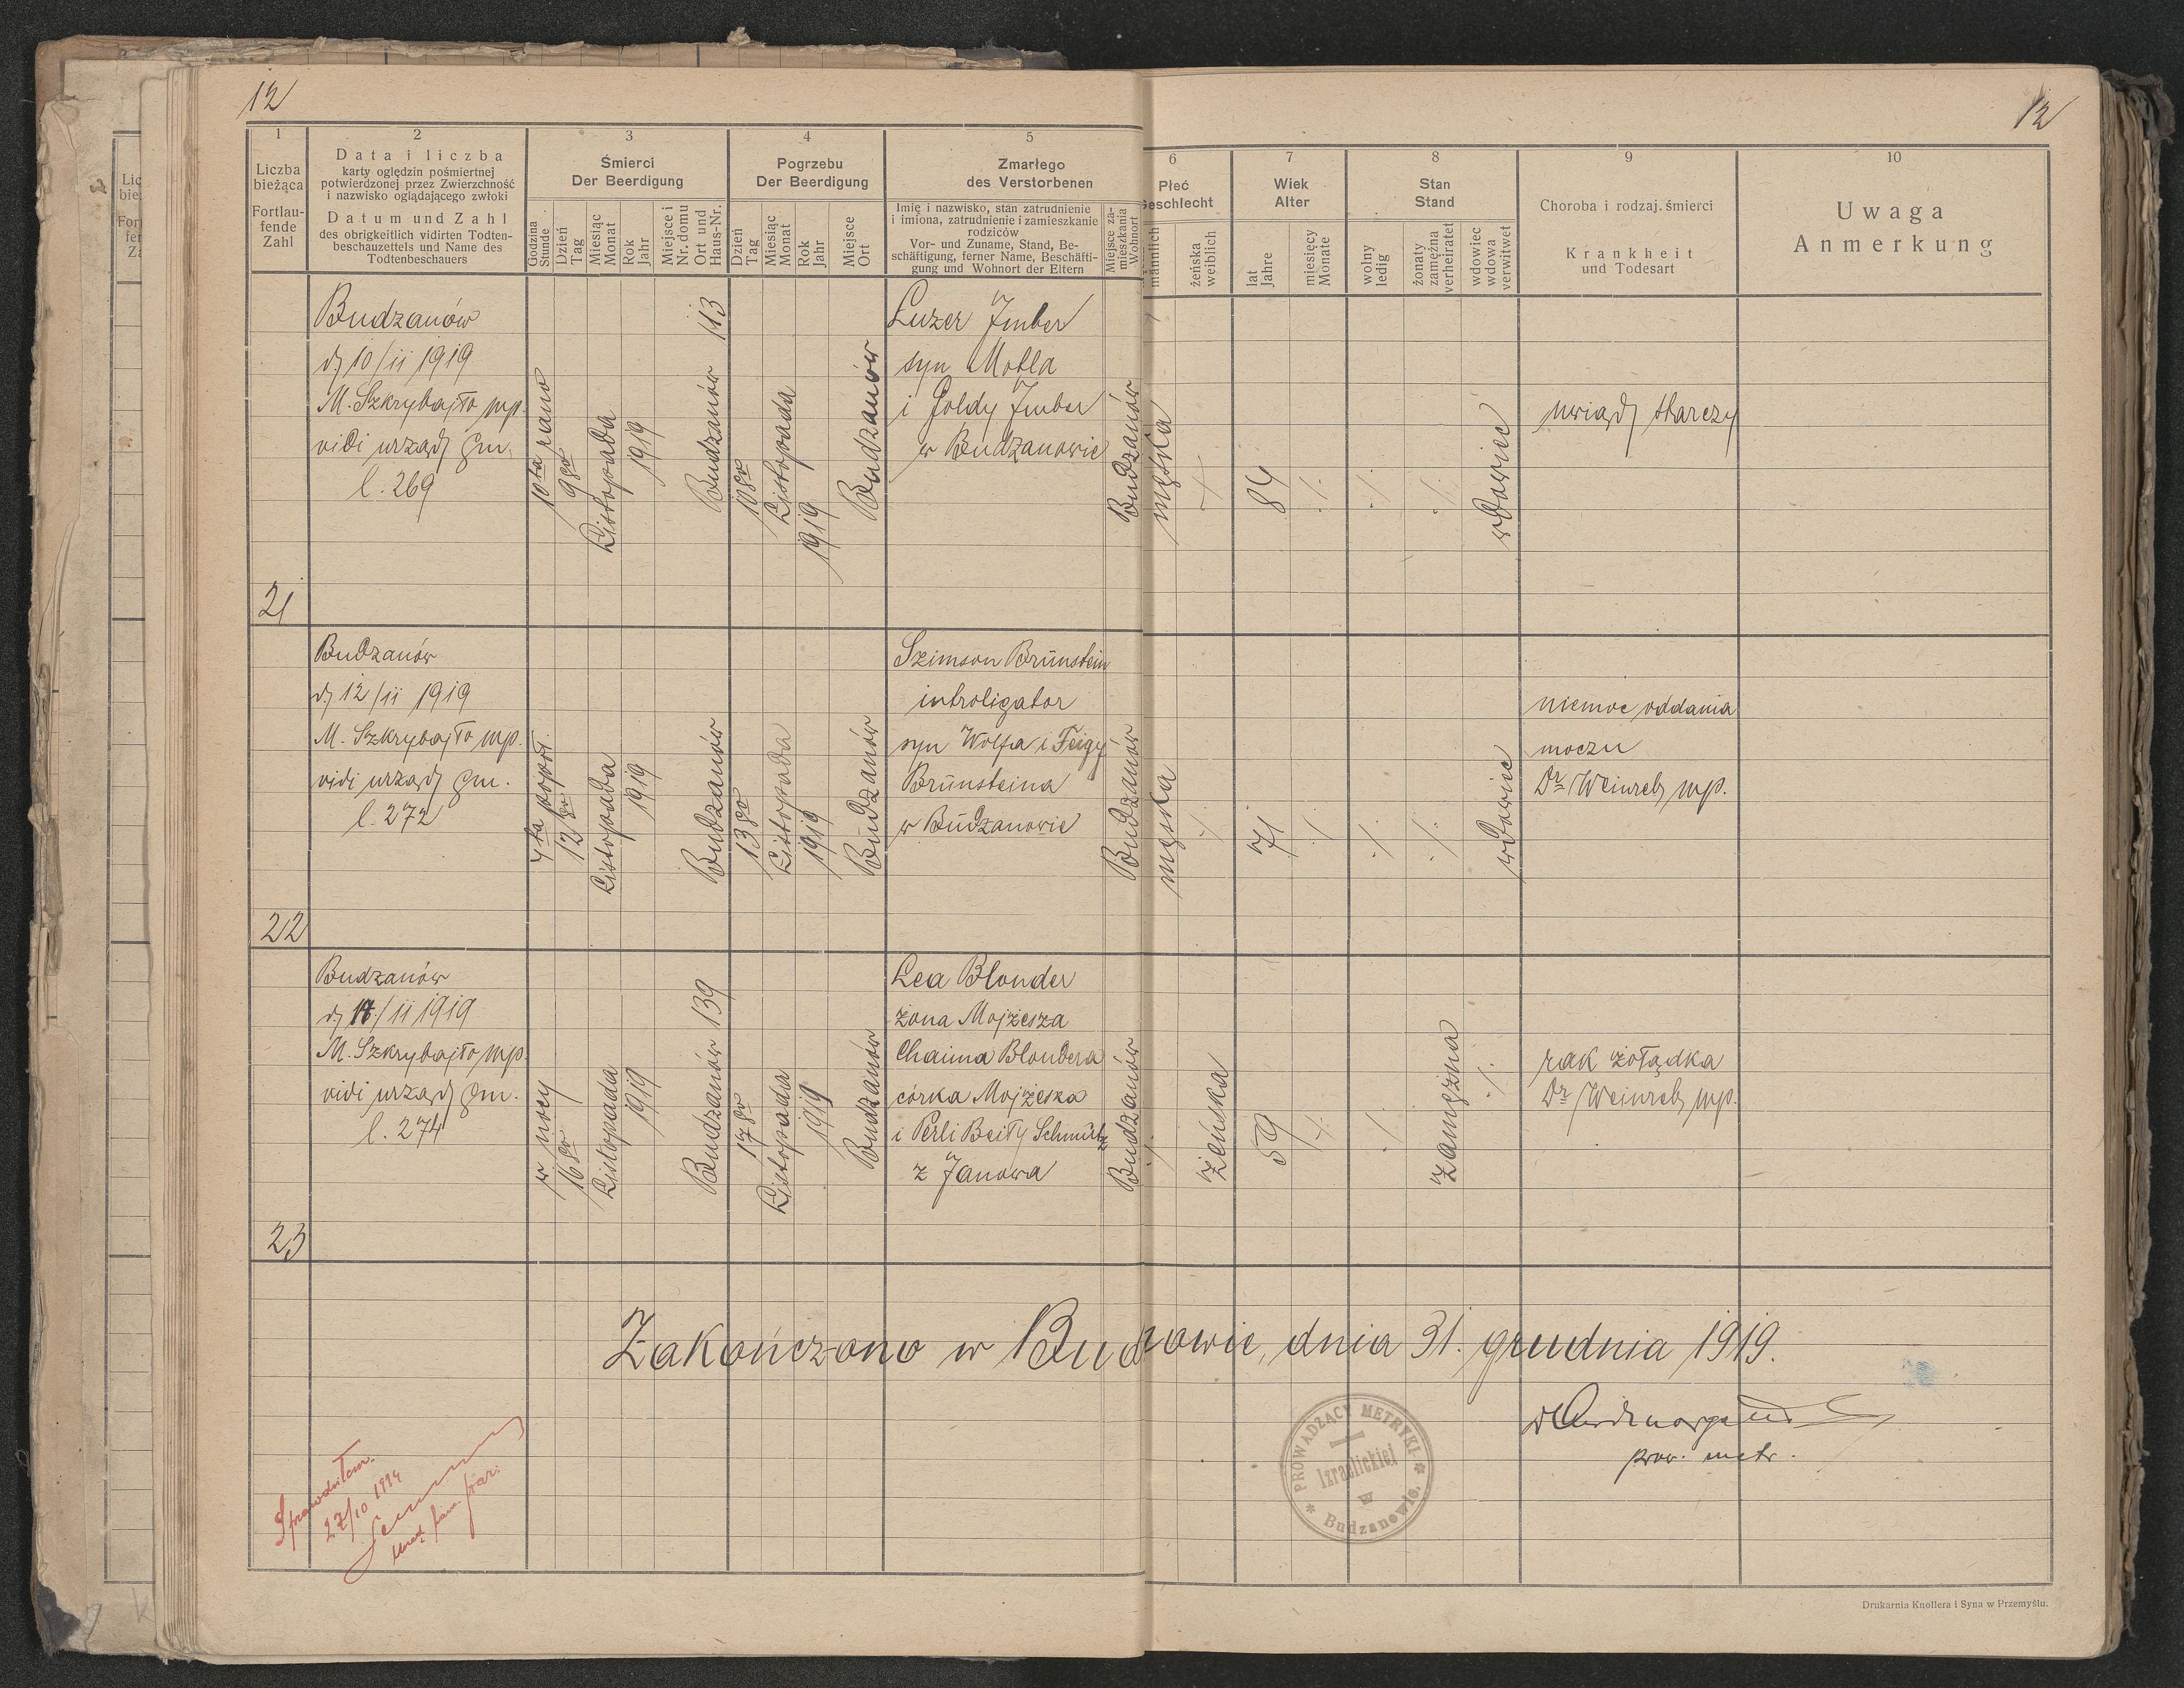 12
12
1
2
3
4
5
6
7
8
9
10
Liczba
bieżąca
Fortlau-
fende
Zahl
Data i liczba
karty oględzin pośmiertnej
potwierdzonej przez Zwierzchność
i nazwisko oglądającego zwłoki
Datum und Zahl
des obrigkeitlich vidirten Todten-
beschauzettels und Name des
Todtenbeschauers
Śmierci
Der Beerdigung
Godzina
Stunde
Dzień
Tag
Miesiąc
Monat
Rok
Jahr
Miejsce i
Nr. domu
Ort und
Haus-Nr.
Pogrzebu
Der Beerdigung
Dzień
Tag
Miesiąc
Monat
Rok
Jahr
Miejsce
Ort
Zmarłego
des Verstorbenen
Imię i nazwisko, stan zatrudnienie
i imiona, zatrudnienie i zamieszkanie
rodziców
Vor- und Zuname, Stand, Be-
schäftigung, ferner Name, Beschäfti-
gung und Wohnort der Eltern
Miejsce za-
mieszkania
Wohnort
Płeć
Geschlecht
männlich
żeńska
weiblich
Wiek
Alter
lat
Jahre
miesięcy
Monate
Stan
Stand
wolny
ledig
żonaty
zamężna
verheiratet
wdowiec
wdowa
verwitwet
Choroba i rodzaj. śmierci
Krankheit
und Todesart
Uwaga
Anmerkung
21
Budzanów
d. 10/11 1919
M. Szkrybajło mp.
vidi urząd gm.
l. 269
10ta rano
9go
Listopada
1919
Budzanów 113
10go
Listopada
1919
Budzanów
Luzer Imber
syn Motla
i Goldy Imber
w Budzanowie
Budzanów
męska
./.
84
./.
./.
./.
wdowiec
uwiąd starczy
22
Budzanów
d. 12/11 1919
M. Szkrybajło mp.
vidi urząd gm.
l. 272
4ta popoł.
12go
Listopada
1919
Budzanów
13go
Listopada
1919
Budzanów
Szimson Brünstein
introligator
syn Wolfa i Feigy
Brünsteina
w Budzanowie
Budzanów
męska
./.
71
./.
./.
./.
wdowiec
niemoc oddania
moczu
Dr Weinreb mp.
23
Budzanów
d. 17/11 1919
M. Szkrybajło mp.
vidi urząd gm.
l. 274
w nocy
16go
Listopada
1919
Budzanów 139
17go
Listopada
1919
Budzanów
Lea Blonder
żona Mojżesza
Chaima Blondera
córka Mojżesza
i Perli Beily
z Janowa
Budzanów
./.
żeńska
59
./.
./.
zamężna
./.
rak żołądka
Dr Weinreb mp.
Zakończono w Budzowie, dnia 31. grudnia 1919.
prow. metr.
PROWADZĄCY METRYKI
Izraelickiej
w
Budzanowie.
Sprawdziłem
27/10
Drukarnia Knollera i Syna w Przemyślu.